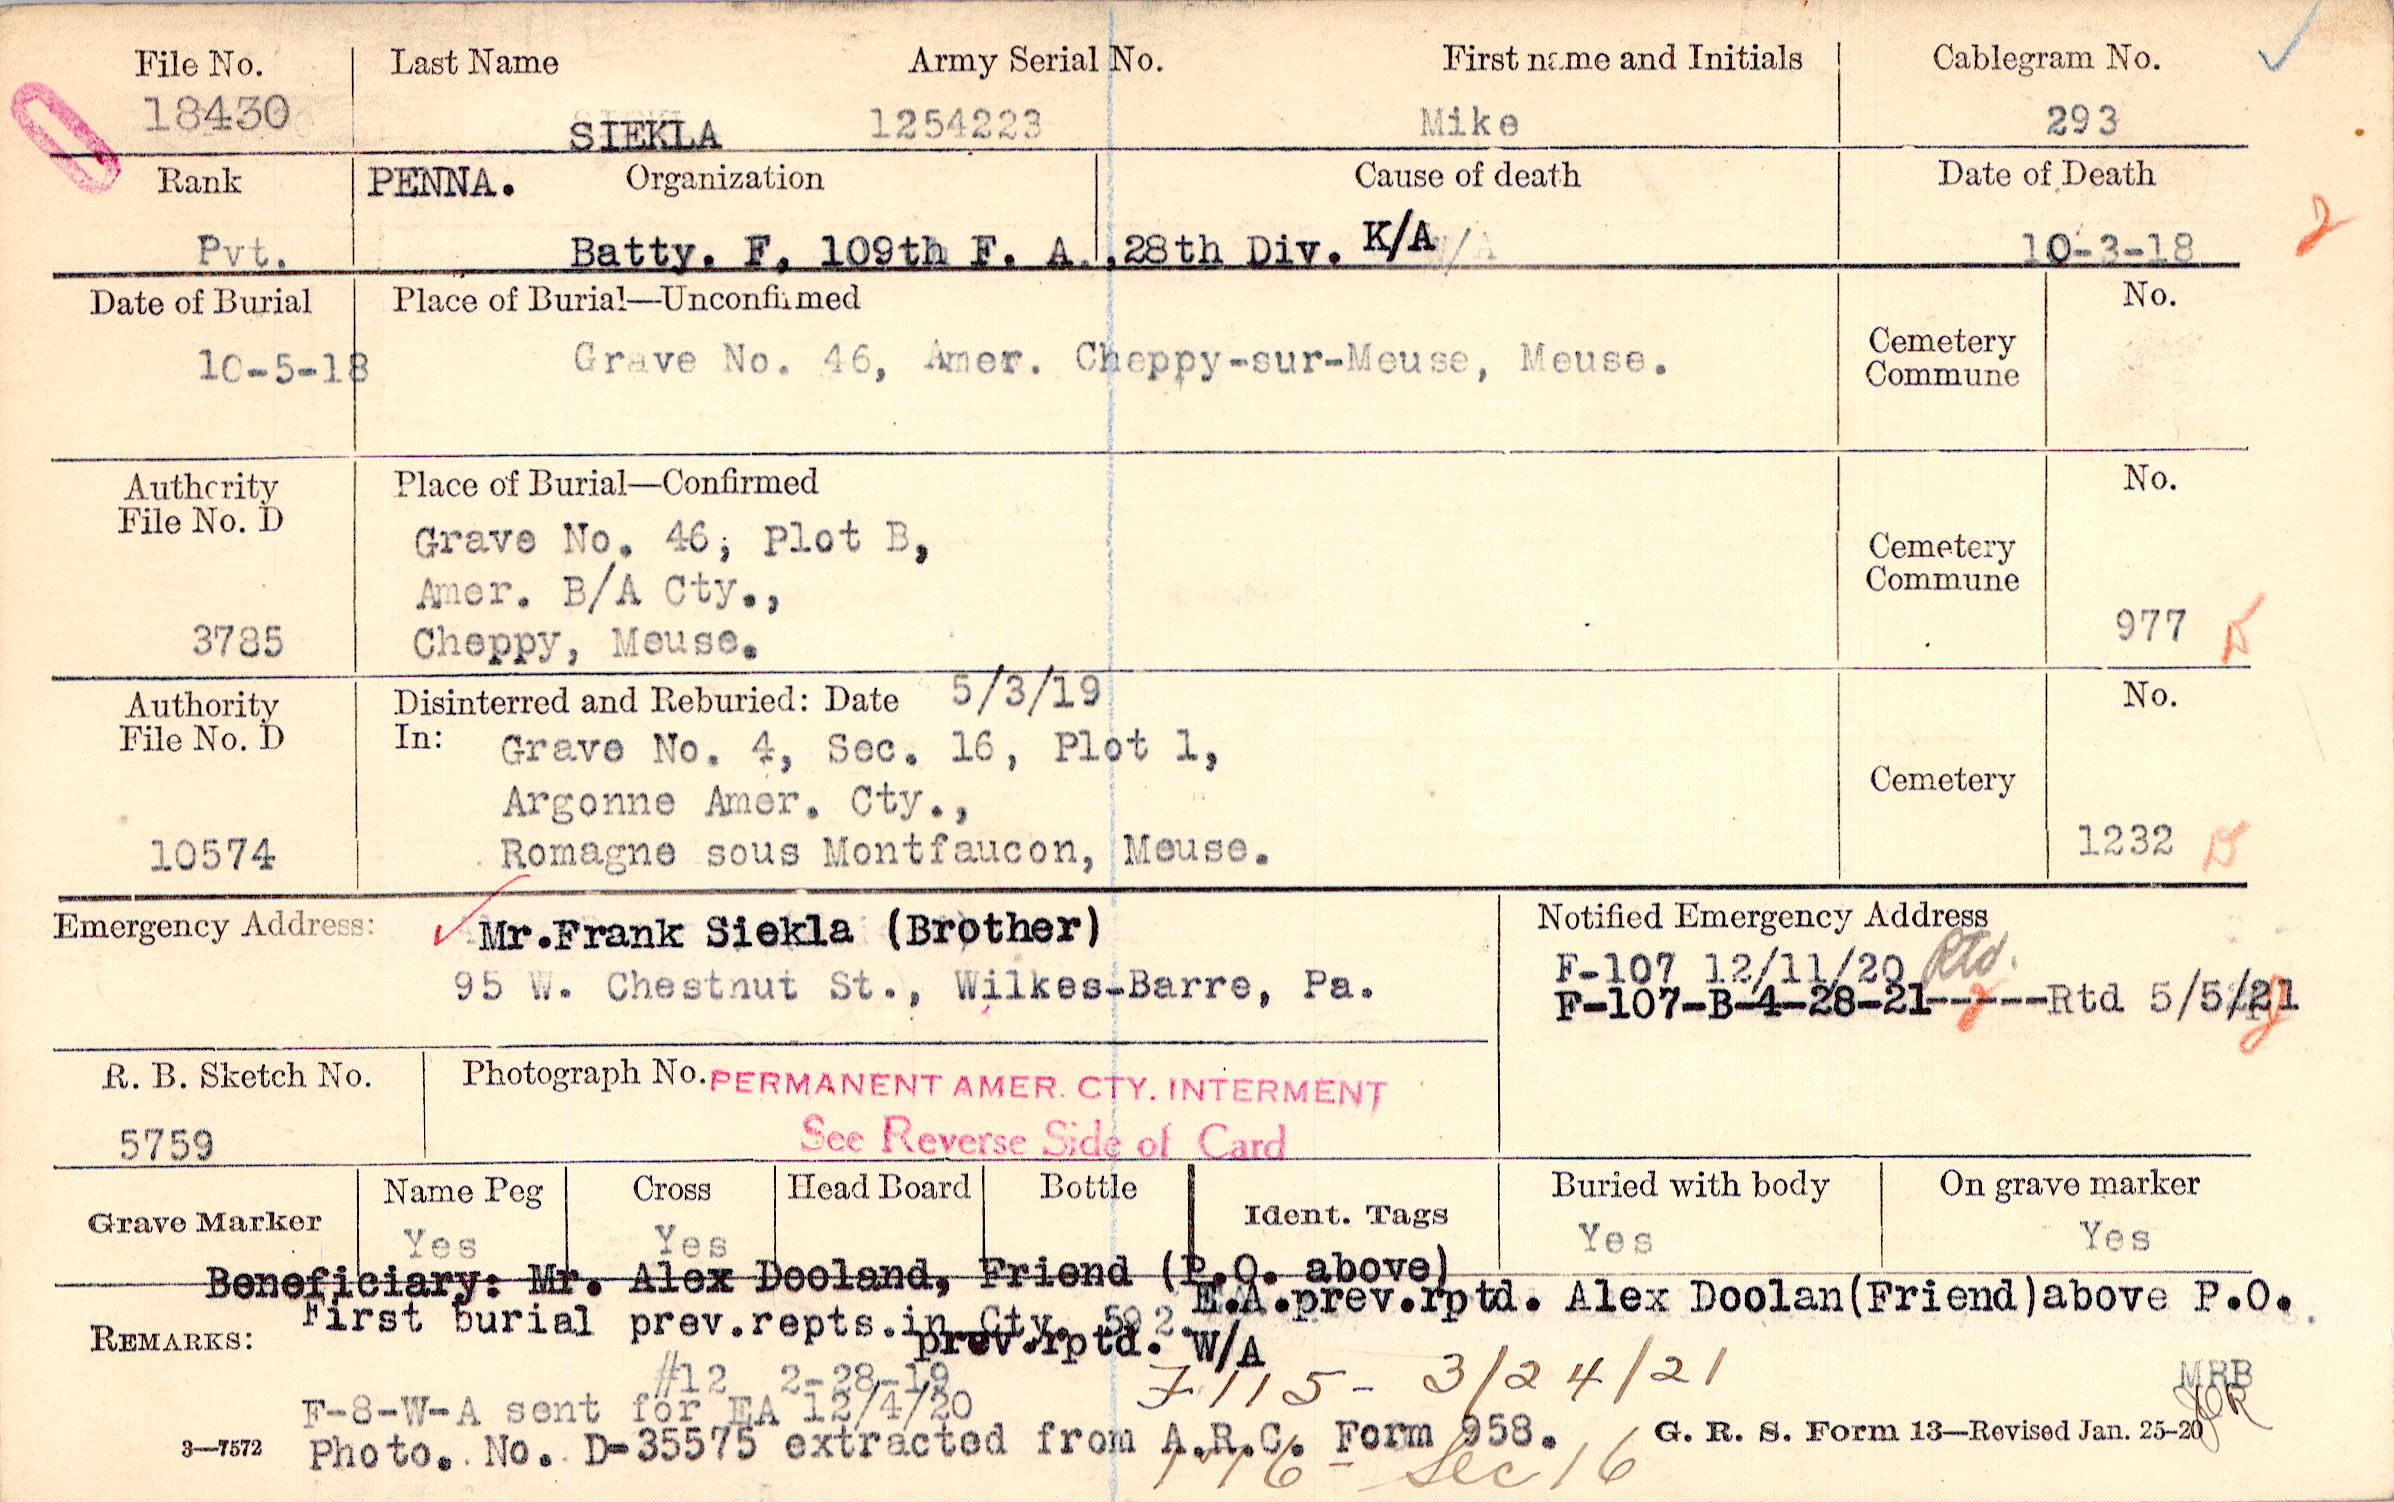 File No. Last Name Army Serial No. First name and Initials Cablegram No.
18430 SIEKLA 1254223 Mike 293
Rank PENNA. Organization Cause of death Date of Death
Pvt. Batty. F, 109th F. A. ,28th Div. K/A W/A 10-3-18
Date of Burial Place of Burial—Unconfirmed No.
10-5-18 Grave No. 46, Amer. Cheppy-sur-Meuse, Meuse. Cemetery
Commune
Authority Place of Burial—Confirmed No.
File No. D
Grave No. 46; Plot B,
Amer. B/A Cty., Cemetery
Commune
3785 Cheppy, Meuse. 977
Authority Disinterred and Reburied: Date 5/3/19 No.
File No. D In: Grave No. 4, Sec. 16, Plot 1,
Argonne Amer. Cty., Cemetery
10574 Romagne sous Montfaucon, Meuse. 1232
Emergency Address: Mr.Frank Siekla (Brother) Notified Emergency Address
95 W. Chestnut St., Wilkes-Barre, Pa. F-107 12/11/20 Rtd.
F-107-B-4-28-21-----Rtd 5/5/21
R. B. Sketch No. Photograph No. PERMANENT AMER. CTY. INTERMENT
5759 See Reverse Side of Card
Grave Marker Name Peg Cross Head Board Bottle Ident. Tags Buried with body On grave marker
Yes Yes Yes Yes
Beneficiary: Mr. Alex Dooland, Friend (P.O. above)
E.A.prev.rptd. Alex Doolan(Friend)above P.O.
First burial prev.repts.in Cty. 592.
REMARKS: prev.rptd. W/A
#12 2-28-19 F115- 3/24/21 MRB
F-8-W-A sent for EA 12/4/20
3—7572 Photo. No. D-35575 extracted from A.R.C. Form 958. G. R. S. Form 13—Revised Jan. 25-20
Sec 16